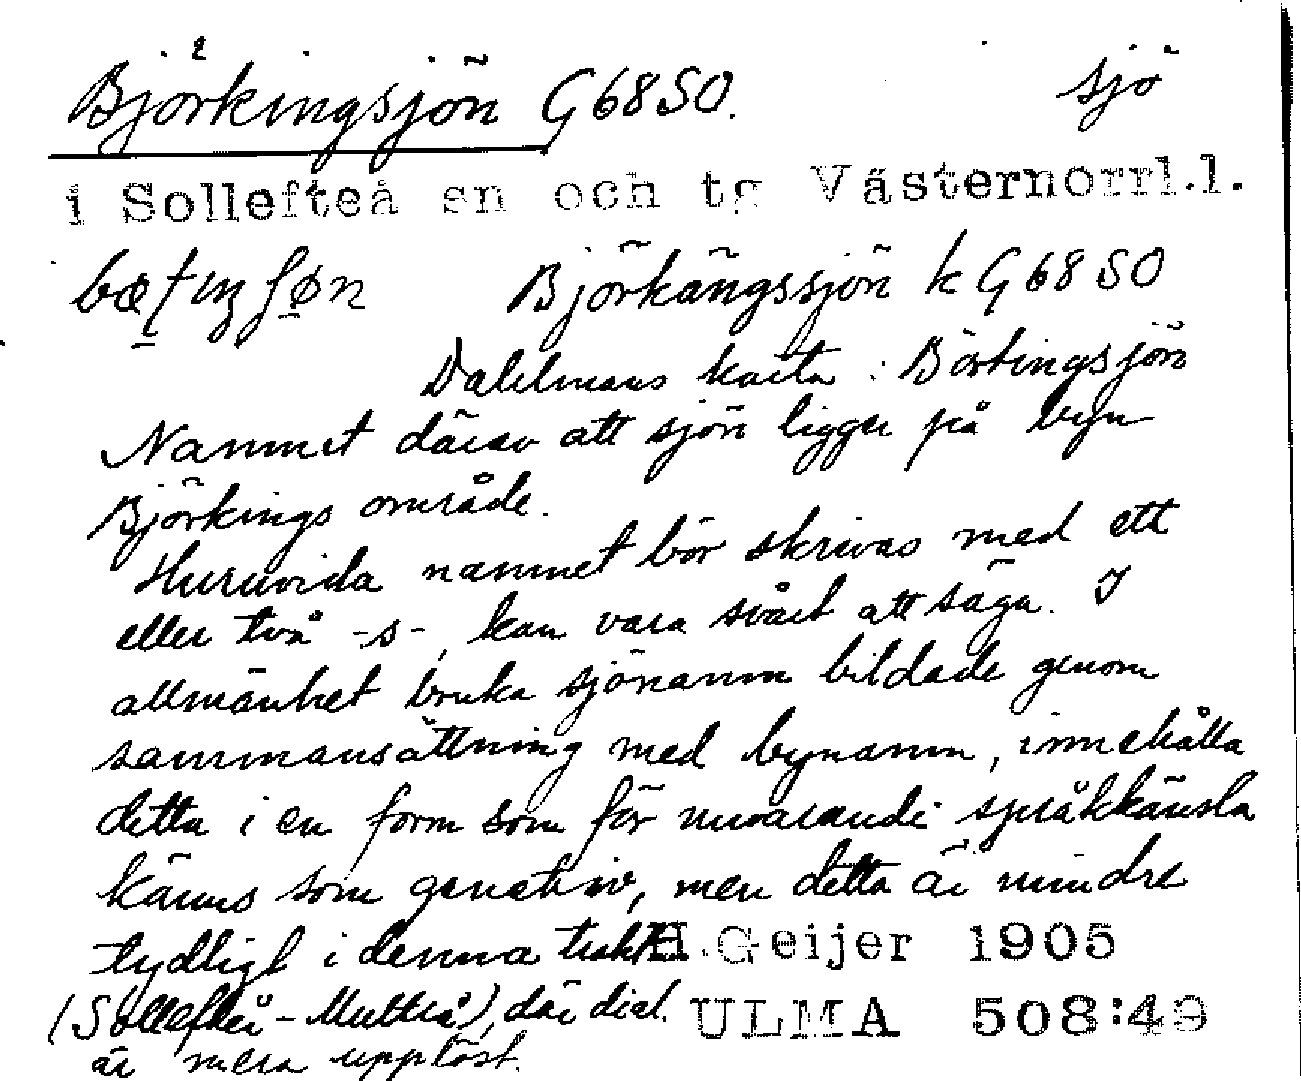 Björkingsjön G68SO. sjö
i Sollefteå sn och tg Västernorrl.l.
Björkängssjön k G68SO
Dahlmans karta: Börtingsjön
Namnet därav att sjön ligger på byn
Björkings område.
Huruvida namnet bör skrivas med ett
eller två -s-, kan vara svårt att säga. I
allmänhet bruka sjönamn bildade genom
sammansättning med bynamn, innehålla
detta i en form som för nuvarande språkkänsla
känns som genetiv, men detta är mindre
tydligt i denna trakt H.Geijer 1905
(Sollefteå - Multrå), där dial. ULMA 508:49
är mera upplöst.